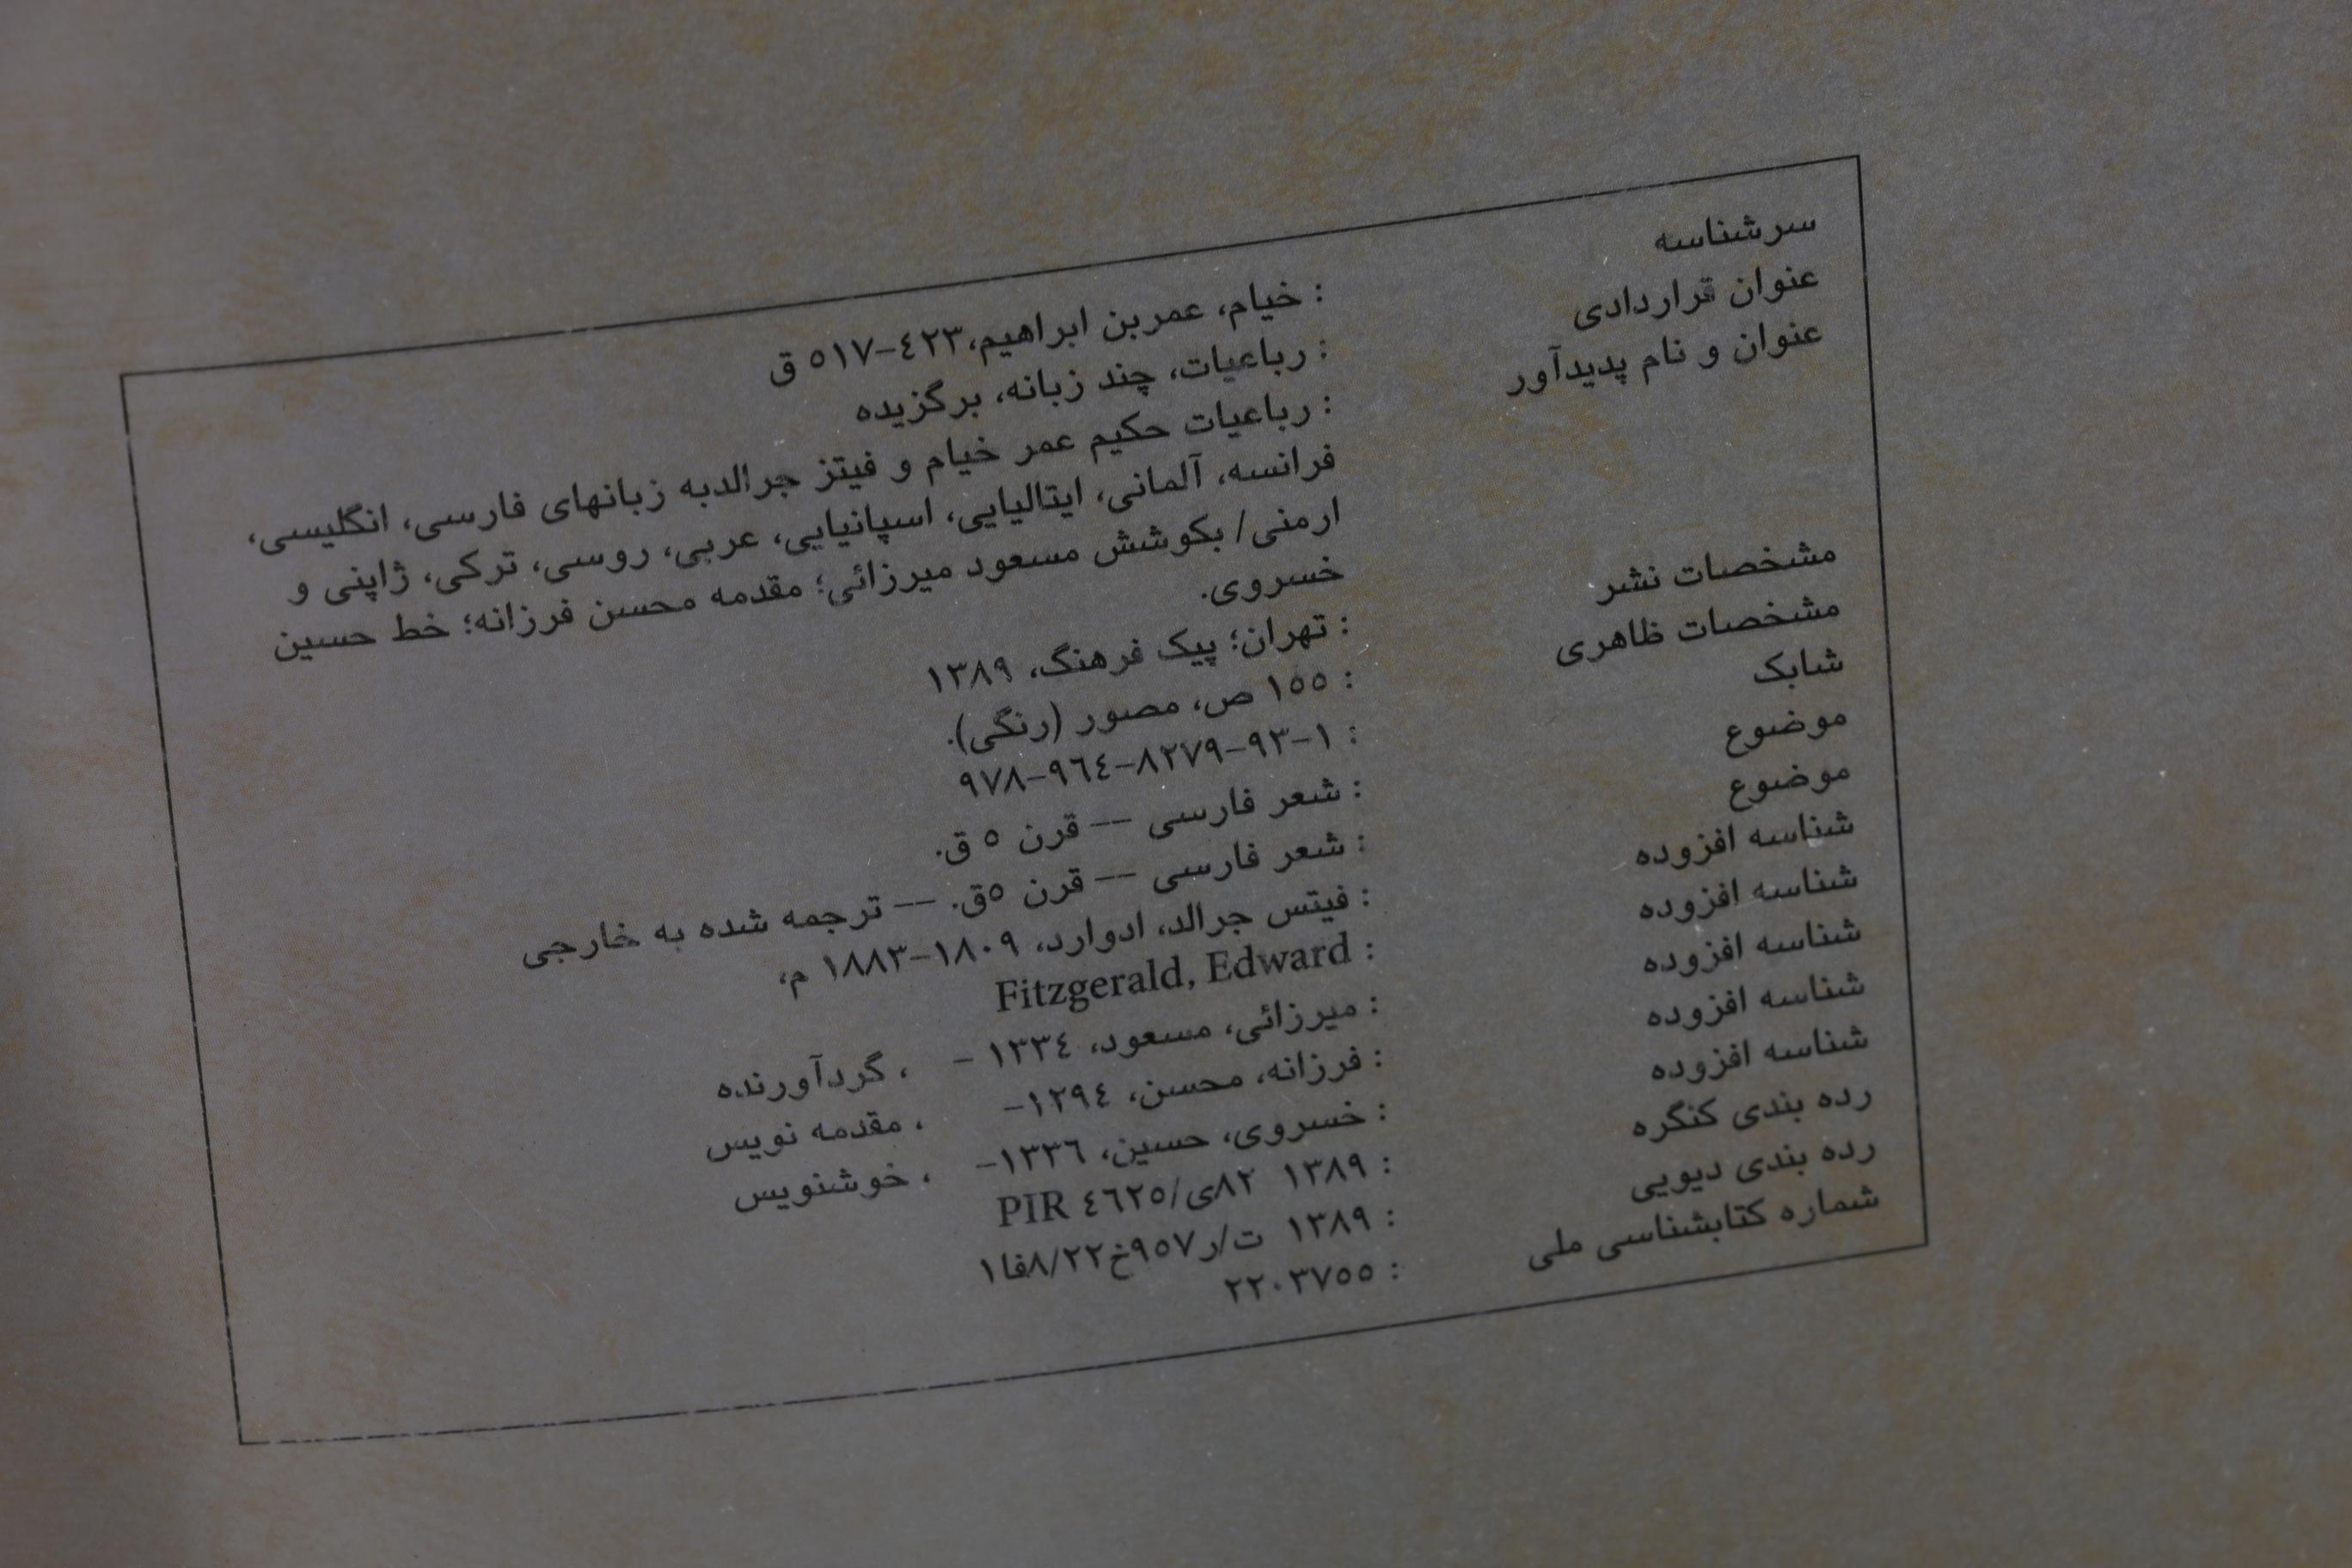 سرشناسه : خیام، عمربن ابراهیم،٤٢٣-٥١٧ ق
عنوان قراردادی : رباعیات، چند زبانه، برگزیده
عنوان و نام پدیدآور : رباعیات حکیم عمر خیام و فیتز جرالدبه زبانهای فارسی، انگلیسی،
فرانسه، آلمانی، ایتالیایی، اسپانیایی، عربی، روسی، ترکی، ژاپنی و
ارمنی/ بکوشش مسعود میرزائی؛ مقدمه محسن فرزانه؛ خط حسین
خسروی.
مشخصات نشر : تهران؛ پیک فرهنگ، ١٣٨٩
مشخصات ظاهری : ١٥٥ ص، مصور (رنگی).
شابک : ٩٧٨-٩٦٤-٨٢٧٩-٩٣-١
موضوع : شعر فارسی -- قرن ٥ ق.
موضوع : شعر فارسی -- قرن ٥ق. -- ترجمه شده به خارجی
شناسه افزوده : فیتس جرالد، ادوارد، ١٨٠٩-١٨٨٣ م،
شناسه افزوده : Fitzgerald, Edward
شناسه افزوده : میرزائی، مسعود، ١٣٣٤ - ، گردآورنده
شناسه افزوده : فرزانه، محسن، ١٢٩٤- ، مقدمه نویس
شناسه افزوده : خسروی، حسین، ١٣٣٦- ، خوشنویس
رده بندی کنگره : ١٣٨٩ ٨٢ی/٤٦٢٥ PIR
رده بندی دیویی : ١٣٨٩ ت/ر٩٥٧خ٨/٢٢فا١
شماره کتابشناسی ملی : ٢٢٠٣٧٥٥